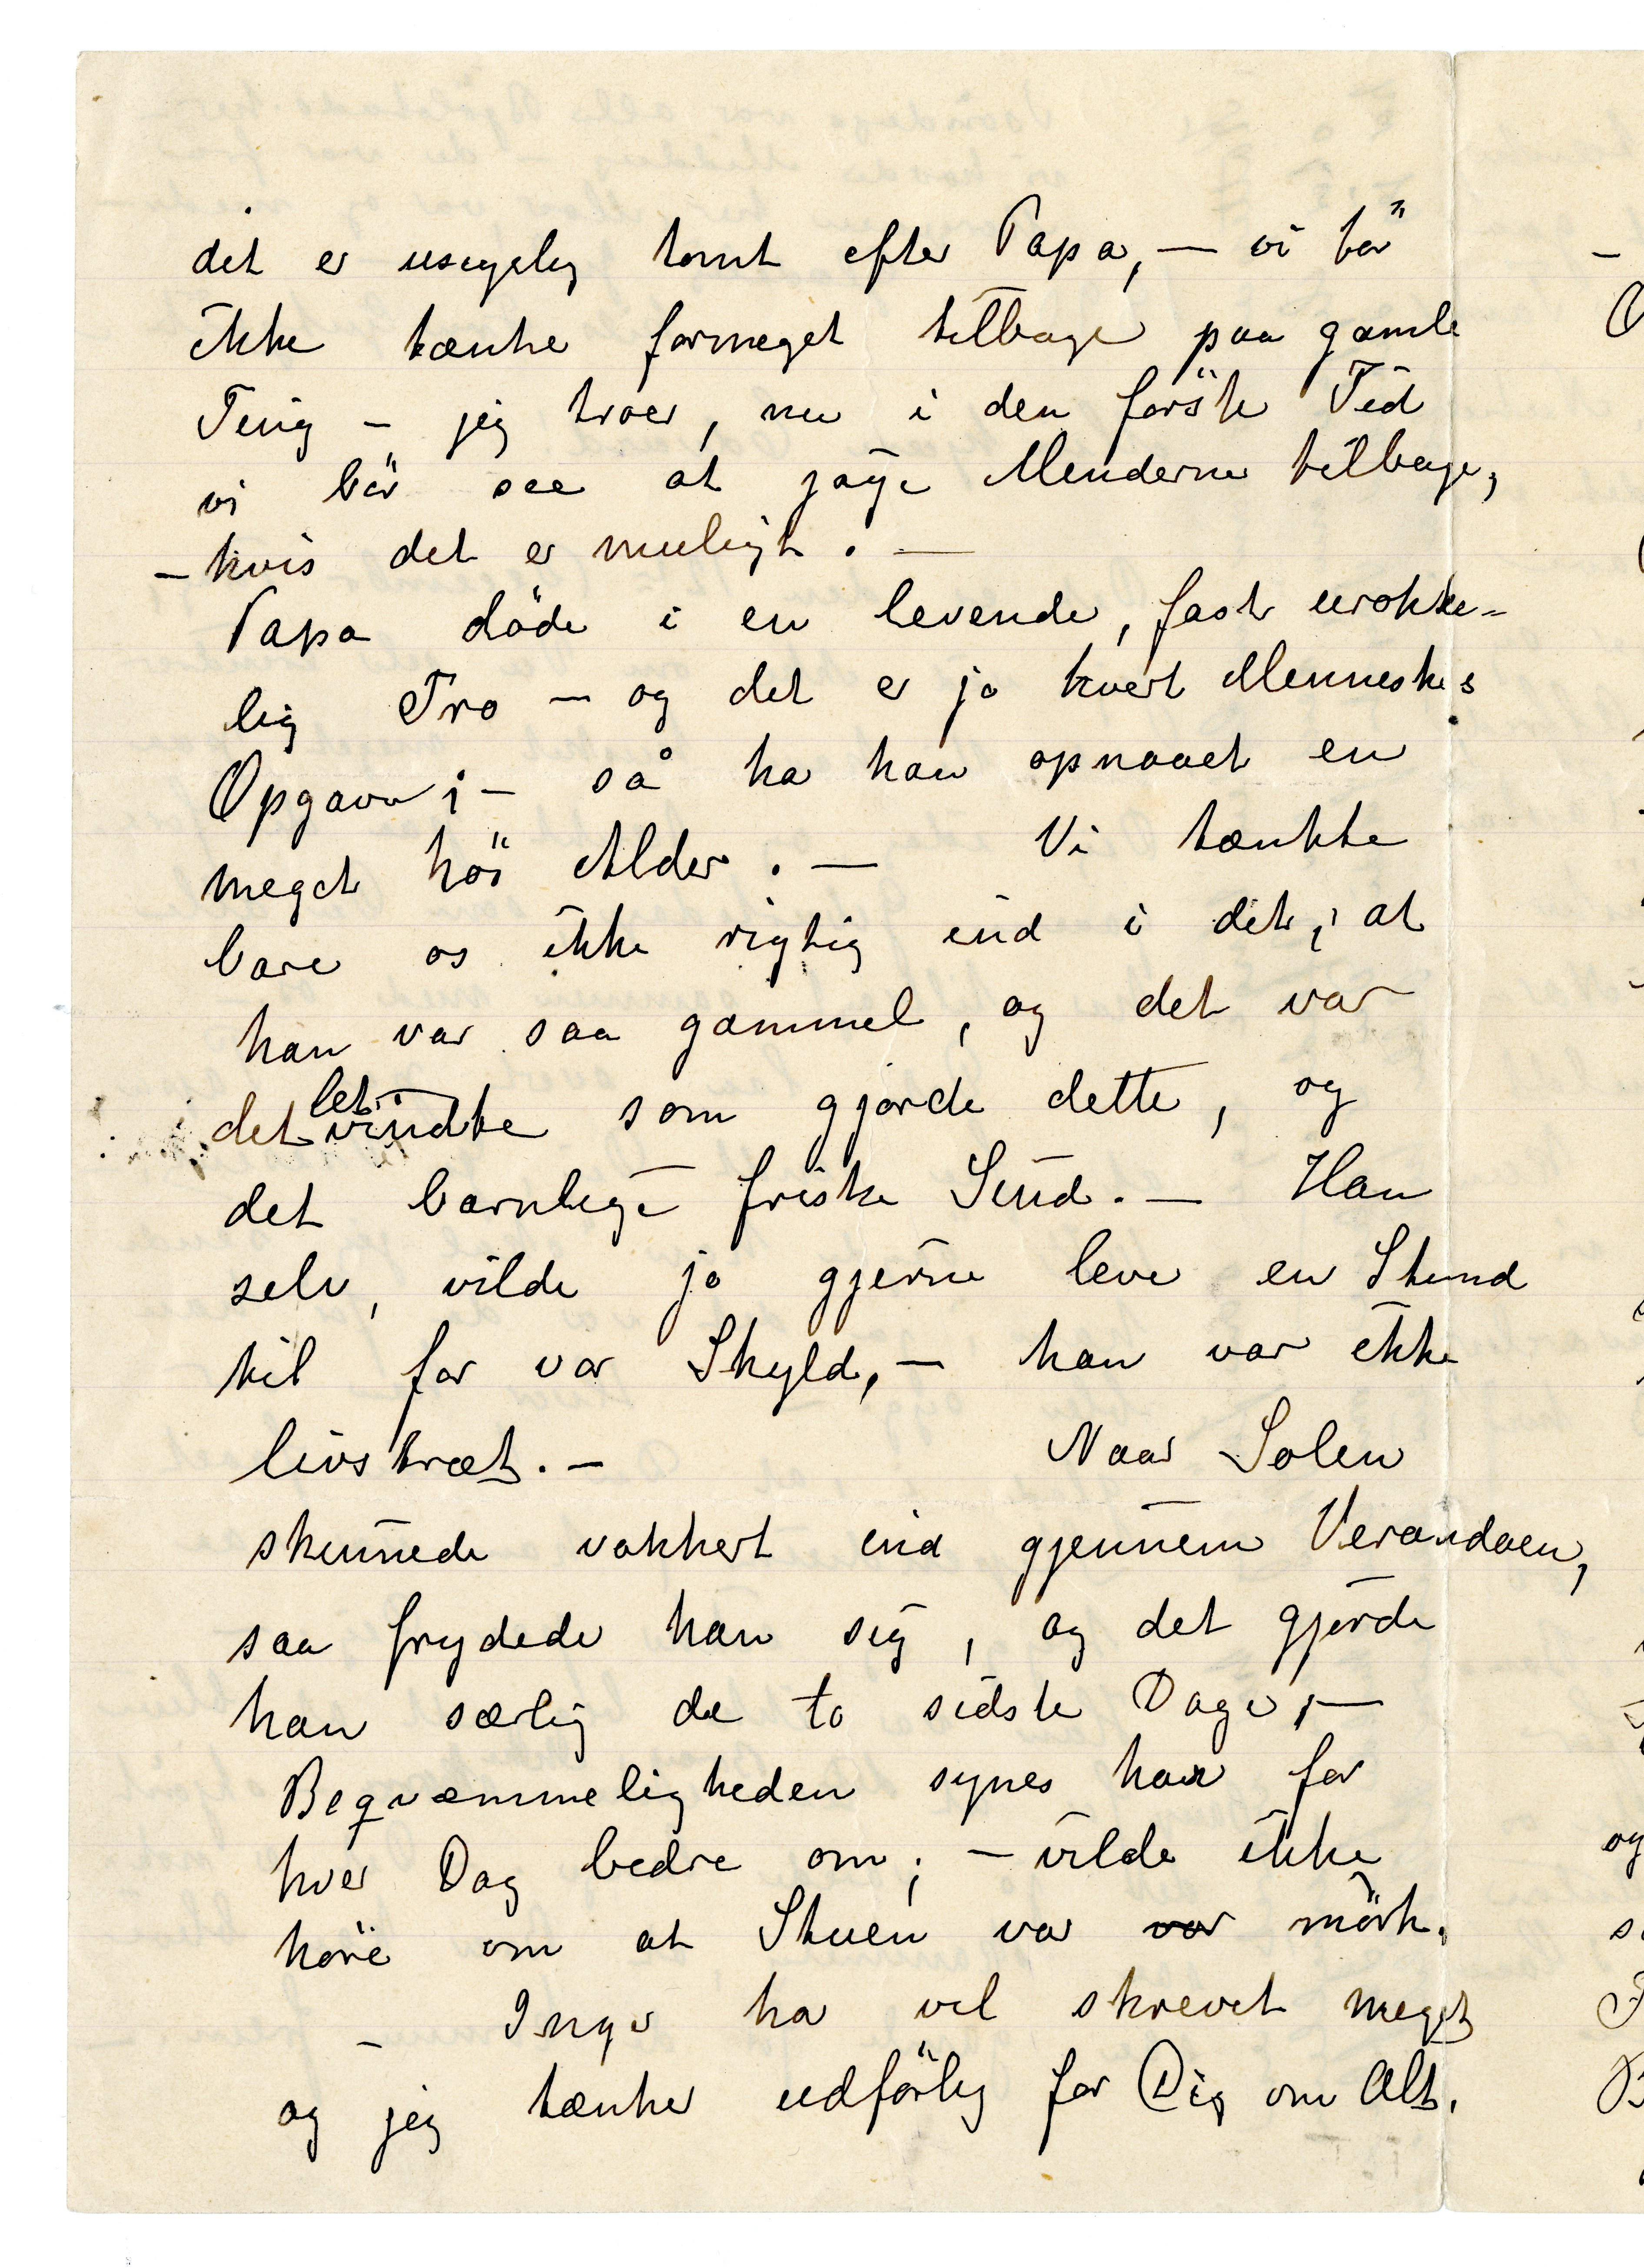 det er usigelig tomt efter Papa, — vi bör
ikke tænke formeget tilbage paa gamle
Ting – jeg troer, nu i den förste Tid
vi bör see at jage Minderne tilbage,
– hvis det er muligt. —
Papa döde i en levende, fast urokke-
lig Tro – og det er jo hvert Menneskes
Opgave; – så ha han opnaaet en
meget höi Alder. — Vi tænkte
bare os ikke rigtig ind i det, at
han var saa gammel, og det var
det letvindte som gjorde dette, og
det barnlige friske Sind. — Han
selv, vilde jo gjerne leve en Stund
til for vor Skyld, – han var ikke
livstræt. –
Naar Solen
skinnede vakkert ind gjennem Verandaen,
saa frydede han sig, og det gjorde
han særlig de to sidste Dage, —
Beqvæmmeligheden synes han for
hver Dag bedre om; – vilde ikke
höre om at Stuen var var mörk.
– Inga ha vel skrevet meget
og jeg tænker udförlig for Dig om Alt.
og